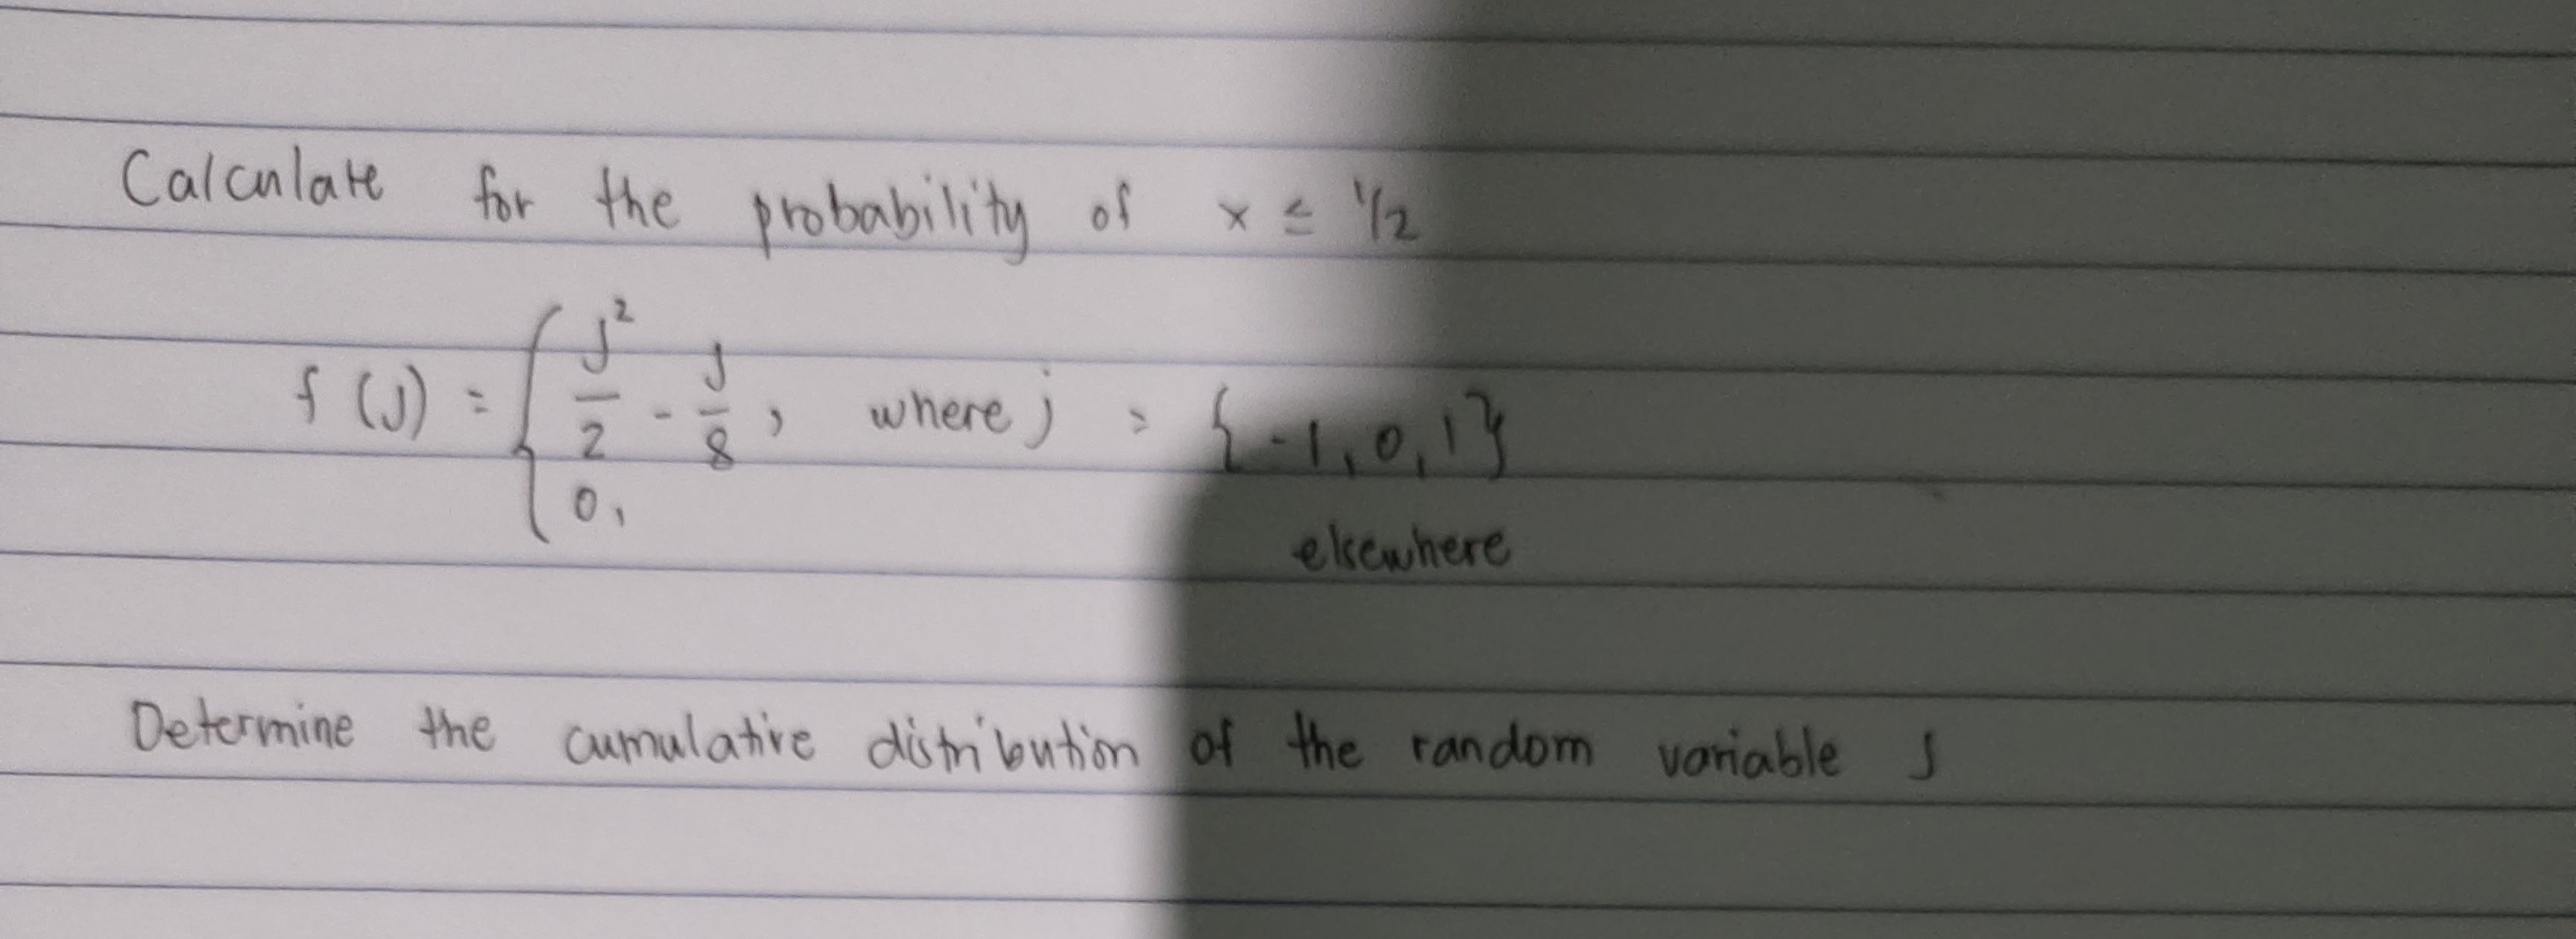 Calculate for the probability of x ≤ 1/2
f (J) = { J²/2 - J/8 , where j = {-1, 0, 1}
0, elsewhere
Determine the cumulative distribution of the random variable J